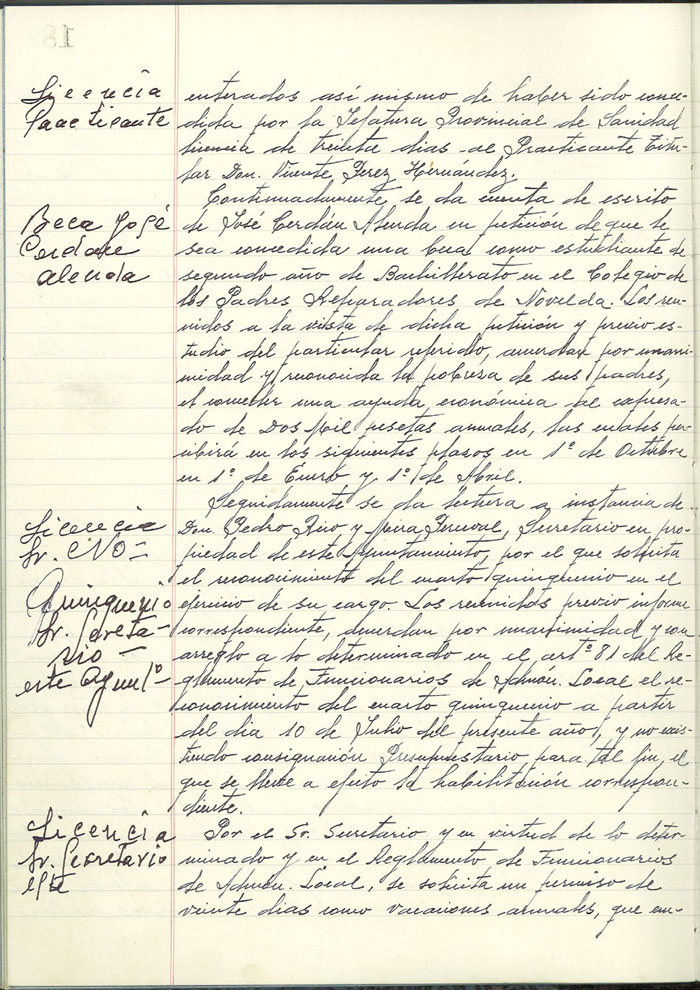 Licencia
Practicante
enterados así mismo de haber sido conce-
dida por la Jefatura Provincial de Sanidad
licencia de treinta dias al Practicante Titu-
lar Don. Vicente Perez Hernández.
Beca José
Cerdán
Alenda
Continuadamente, se da cuenta de escrito
de José Cerdán Alenda en petición de que le
sea concedida una beca como estudiante de
segundo año de Bachillerato en el Colegio de
los Padres Reparadores de Novelda. Los reu-
nidos a la vista de dicha petición y previo es-
tudio del particular referido, acuerdan por unani-
midad y reconocida la pobreza de sus padres,
el conceder una ayuda económica al expresa-
do de Dos Mil pesetas anuales, las cuales per-
cibirá en los siguientes plazos en 1º de Octubre
en 1º de Enero y 1º de Abril.
Licencia
Sr.
Quinquenio
Sr. Secreta-
rio
este Ayuntº
Seguidamente se da lectura a instancia de
Don. Pedro y Secretario en pro-
piedad de este Ayuntamiento, por el que solicita
el reconocimiento del cuarto quinquenio en el
ejercicio de su cargo. Los reunidos previo informe
correspondiente, acuerdan por unanimidad y con
arreglo a lo determinado en el artº 81 del Re-
glamento de Funcionarios de Admón. Local el re-
conocimiento del cuarto quinquenio a partir
del dia 10 de Julio del presente año, y no exis-
tiendo consignación Presupuestario, para tal fin, el
que se lleve a efecto la habilitación correspon-
diente.
Licencia
Sr. Secretario
Por el Sr. Secretario y en virtud de lo deter-
minado y en el Reglamento de Funcionarios
de Admón. Local, se solicita un permiso de
veinte dias como vacaciones anuales, que em-